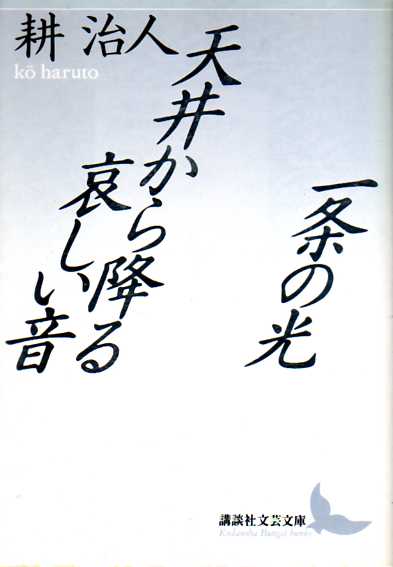 耕 治人
kō haruto
一条の光
天井から降る
哀しい音
講談社文芸文庫
Kodansha Bungei bunko